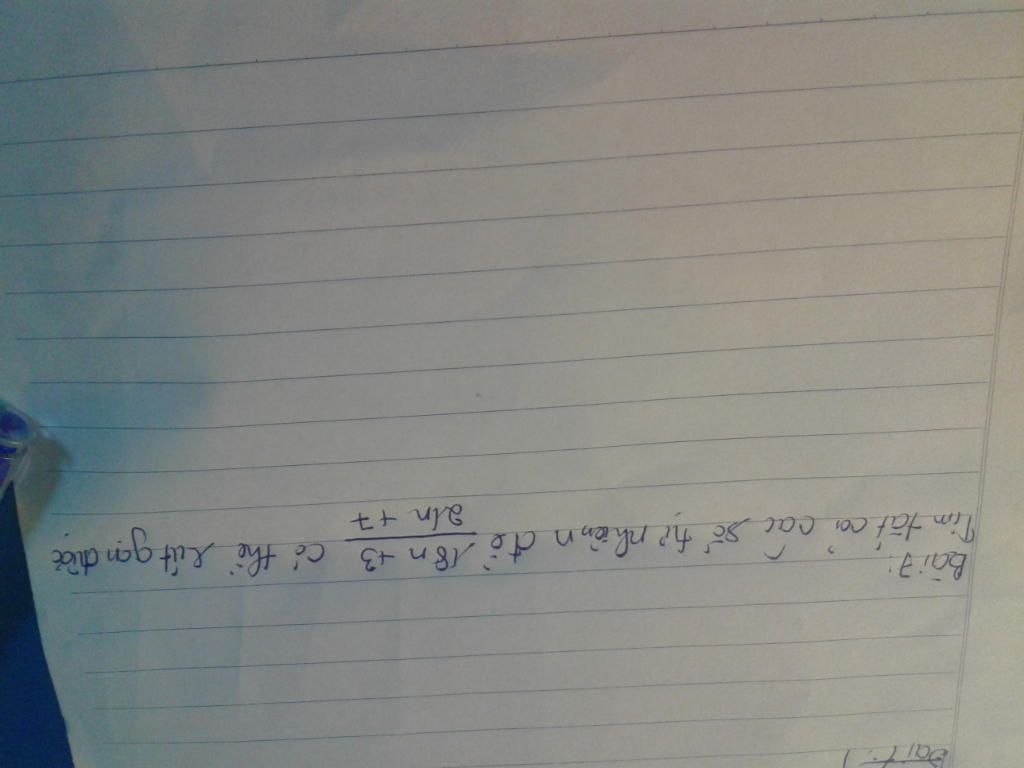 Bài 7:
Tìm tất cả các số tự nhiên n để 18n + 3 / 21n + 7 có thể rút gọn được